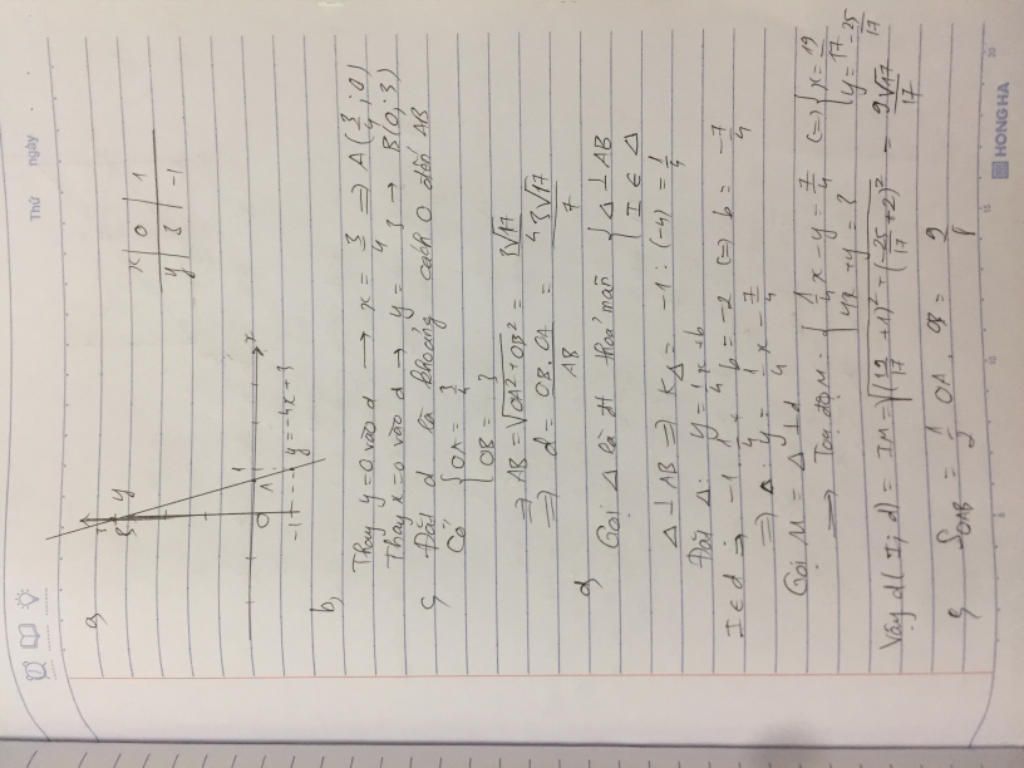 Thứ
ngày
a,
x 0 1
y 3 -1
y
B
x
O
A
1
-1
y = -4x + 3
b,
Thay y = 0 vào d → x = 3/4 ⇒ A(3/4; 0)
Thay x = 0 vào d → y = 3 → B(0; 3)
c, Đặt d là khoảng cách O đến AB
Có { OA = 3/4
OB = 3
⇒ AB = √(OA² + OB²) = 3√17/4
⇒ d = OB.OA/AB = 3√17/
d, Gọi Δ là đt thoả mãn { Δ ⊥ AB
I ∈ Δ
Δ ⊥ AB ⇒ KΔ = -1 : (-4) = 1/4
Đặt Δ: y = 1/4 x + b
I ∈ d ⇒ -1 . 1/4 + b = -2 (=) b = -7/4
⇒ Δ: y = 1/4 x - 7/4
Gọi M = Δ ⊥ d
→ Toạ độ M: { 1/4 x - y = 7/4 (=) { x = 19/17
4x + y = 3 y = -25/17
Vậy d(I; d) = IM = √((19/17 + 1)² + (-25/17 + 2)²) = 9√17/17
e, S OAB = 1/2 OA . OB = 9/8
HONG HA